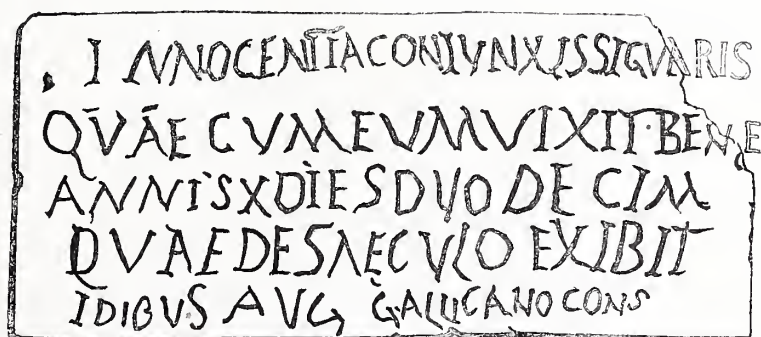 INNOCENTIA CONIVNX IS SIGVARIS
QVAE CVM EVM VIXIT · BENE
ANNIS X DIES DVODECIM
QVAE DE SAECVLO EXIBIT
IDIBVS AVG GALLICANO CONS